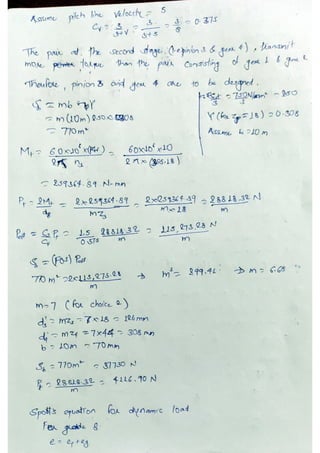 Assume pitch line velocity = 5
Cv = 3/(3+V) = 3/(3+5) = 3/8 = 0.375
The pair at the second stage, (pinion 3 & gear 4), transmit
more torque than the pair consisting of gear 1 & gear 2
Therefore, pinion 3 and gear 4 are to be designed.
= m(10m) 250 × 0.308
= 770m²
Y (for Z = 18) = 0.308
Assume b = 10m
Mt = 60×10⁶ × (kW) / 2π n₁ = 60×10⁶ × 10 /
= 259364.89 N-mm
Pt = 2Mt / = 2×259364.89 / mZ₃ = 2×259364.89 / m×18 = 28818.32 / m N
Peff = Cs/Cv Pt = 1.5/0.375 28818.32/m = 115,273.28/m N
Sb = (FOS) Peff
770 m² = 2×115,273.28/m → m³ = 299.41 → m = 6.68
m = 7 (for choice 2)
= mZ₃ = 7×18 = 126 mm
= mZ₄ = 7×44 = 308 mm
b = 10m = 70mm
Sb = 770m² = 37730 N
Pt = 28818.32/m = 4116.90 N
Spott's equation for dynamic load
For grade 8
e = ep + eg